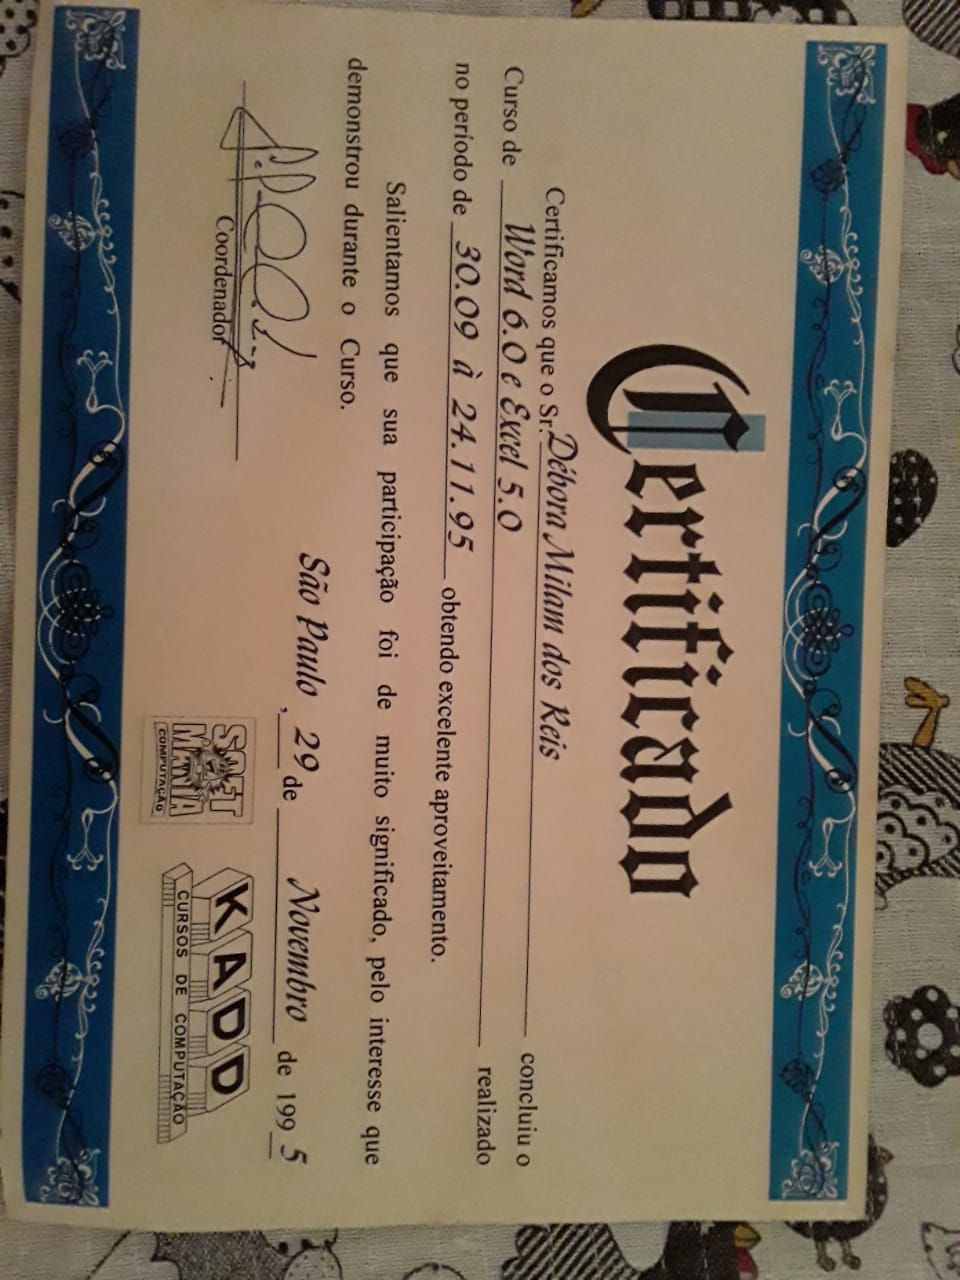 Certificado
Certificamos que o Sr. Débora Milam dos Reis concluiu o
Curso de Word 6.0 e Excel 5.0 realizado
no período de 30.09 à 24.11.95 obtendo excelente aproveitamento.
Salientamos que sua participação foi de muito significado, pelo interesse que
demonstrou durante o Curso.
São Paulo, 29 de Novembro de 1995
Coordenador
SOFT
MANIA
COMPUTAÇÃO
KADD
CURSOS DE COMPUTAÇÃO